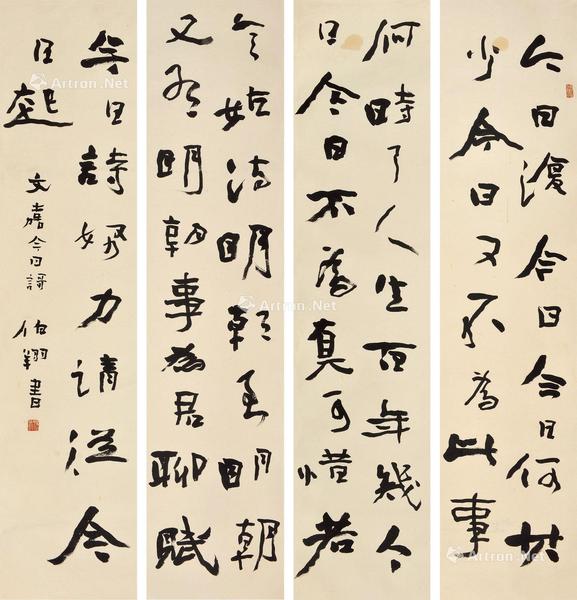 今日復今日今日何其
少今日又不為此事
何時了人生百年幾今
日今日不為真可惜若
言姑待明朝至明朝
又有明朝事為君聊賦
今日詩努力請從今
日起
文嘉今日詩 伯翔書
Artron.Net
Artron.Net
Artron.Net
Artron.Net
Artron.Net